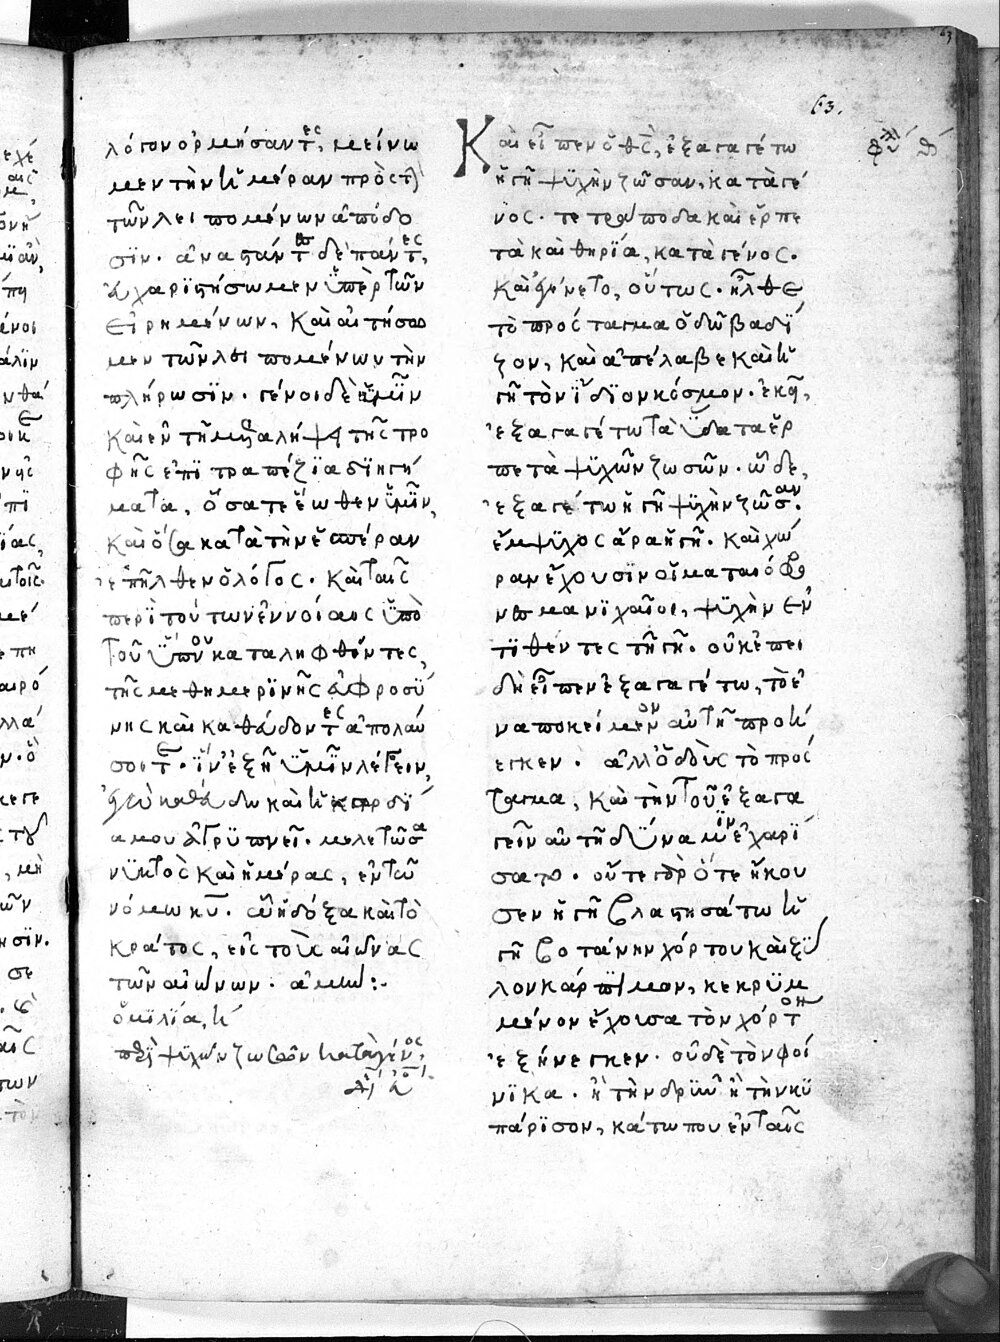 63.
λόγον ὁρμήσαντες, μείνω
μεν τὴν ἡμέραν πρὸς τὴν
τῶν λειπομένων ἀπόδο
σϊν. ἀναπάντων δὲ πάντες,
εὐχαρϊστήσωμεν ὑπὲρ τῶν
εἰρημένων, Καὶ αἰτήσω
μεν τῶν λειπομένων τὴν
πλήρωσϊν. γένοιδε ἡμῖν
Καὶ ἐν τῇ μεταλήψει τῆς τρο
φῆς ἐπϊτραπέζϊα δϊηγή
ματα, ὅσα τε ἕωθεν ἡμῖν,
Καὶ ὅσα κατὰ τὴν ἑσπέραν
ἐπῆλθεν ὁ λόγος. Καὶ ταῖς
περὶ τούτων ἐννοίαις ὑπὸ
τοῦ ὕπνου καταληφθέντες,
τῆς μεθημερϊνῆς εὐφροσύ
νης καὶ καθεύδοντες ἀπολαύ
σοιτε. ἵν' ἐξῇ ὑμῖν λέγειν,
ἐγὼ καθεύδω καὶ ἡ καρδϊ
α μου ἀγρϋπνεῖ. μελετῶσα
νϋκτὸς καὶ ἡμέρας, ἐν τῷ
νόμω κυ. ᾧ ἡ δόξα καὶ τὸ
κράτος, εἰς τοὺς αἰῶνας
τῶν αἰώνων. ἀμήν:-
ὁμϊλϊα, η
περϊ ψϋχῶν ζωσῶν κατὰ γένος,
Καὶ εἶπεν ὁ θς, ἐξαγαγέτω
ἡ γῆ ψϋχὴν ζῶσαν, κατὰ γέ
νος. τετράποδα καὶ ἕρπε
τὰ καὶ θηρϊα, κατὰ γένος.
Καὶ ἐγένετο, οὕτως. ἦλθε
τὸ πρόσταγμα ὁδῶ βαδϊ
ζον, Καὶ ἀπέλαβε καὶ ἡ
γῆ τὸν ἴδϊον κόσμον. ἐκεῖ,
ἐξαγαγέτω τὰ ὕδατα ἕρ
πετὰ ψϋχῶν ζωσῶν. ὧδε,
ἐξαγέτω ἡ γῆ ψϋχὴν ζῶσαν.
ἔμψϋχος ἄρα ἡ γῆ. Καὶ χώ
ραν ἔχουσϊν οἱ ματαιόφρο
νες μανϊχαῖοι, ψϋχὴν ἐν
τϊθέντες τῆ γῆ. οὐκ ἐπει
δὴ εἶπεν ἐξαγαγέτω, τὸ ἐ
ναποκείμενον αὐτῆ προή
εγκεν. ἀλλ' ὁ δοὺς τὸ πρόσ
ταγμα, Καὶ τὴν τοῦ ἐξαγα
γεῖν αὐτῆ δύναμϊν ἐχαρϊ
σατο. οὔτε γὰρ ὅτε ἤκου
σεν ἡ γῆ βλαστησάτω ἡ
γῆ βοτάνην χόρτου καὶ ξύ
λον κάρπϊμον, κεκρϋμ
μένον ἔχουσα τὸν χόρτον
ἐξήνεγκεν. οὐδὲ τὸν φοί
νϊκα. ἢ τὴν δρῦν ἢ τὴν κϋ
πάρϊσσον, κάτω που ἐν ταῖς